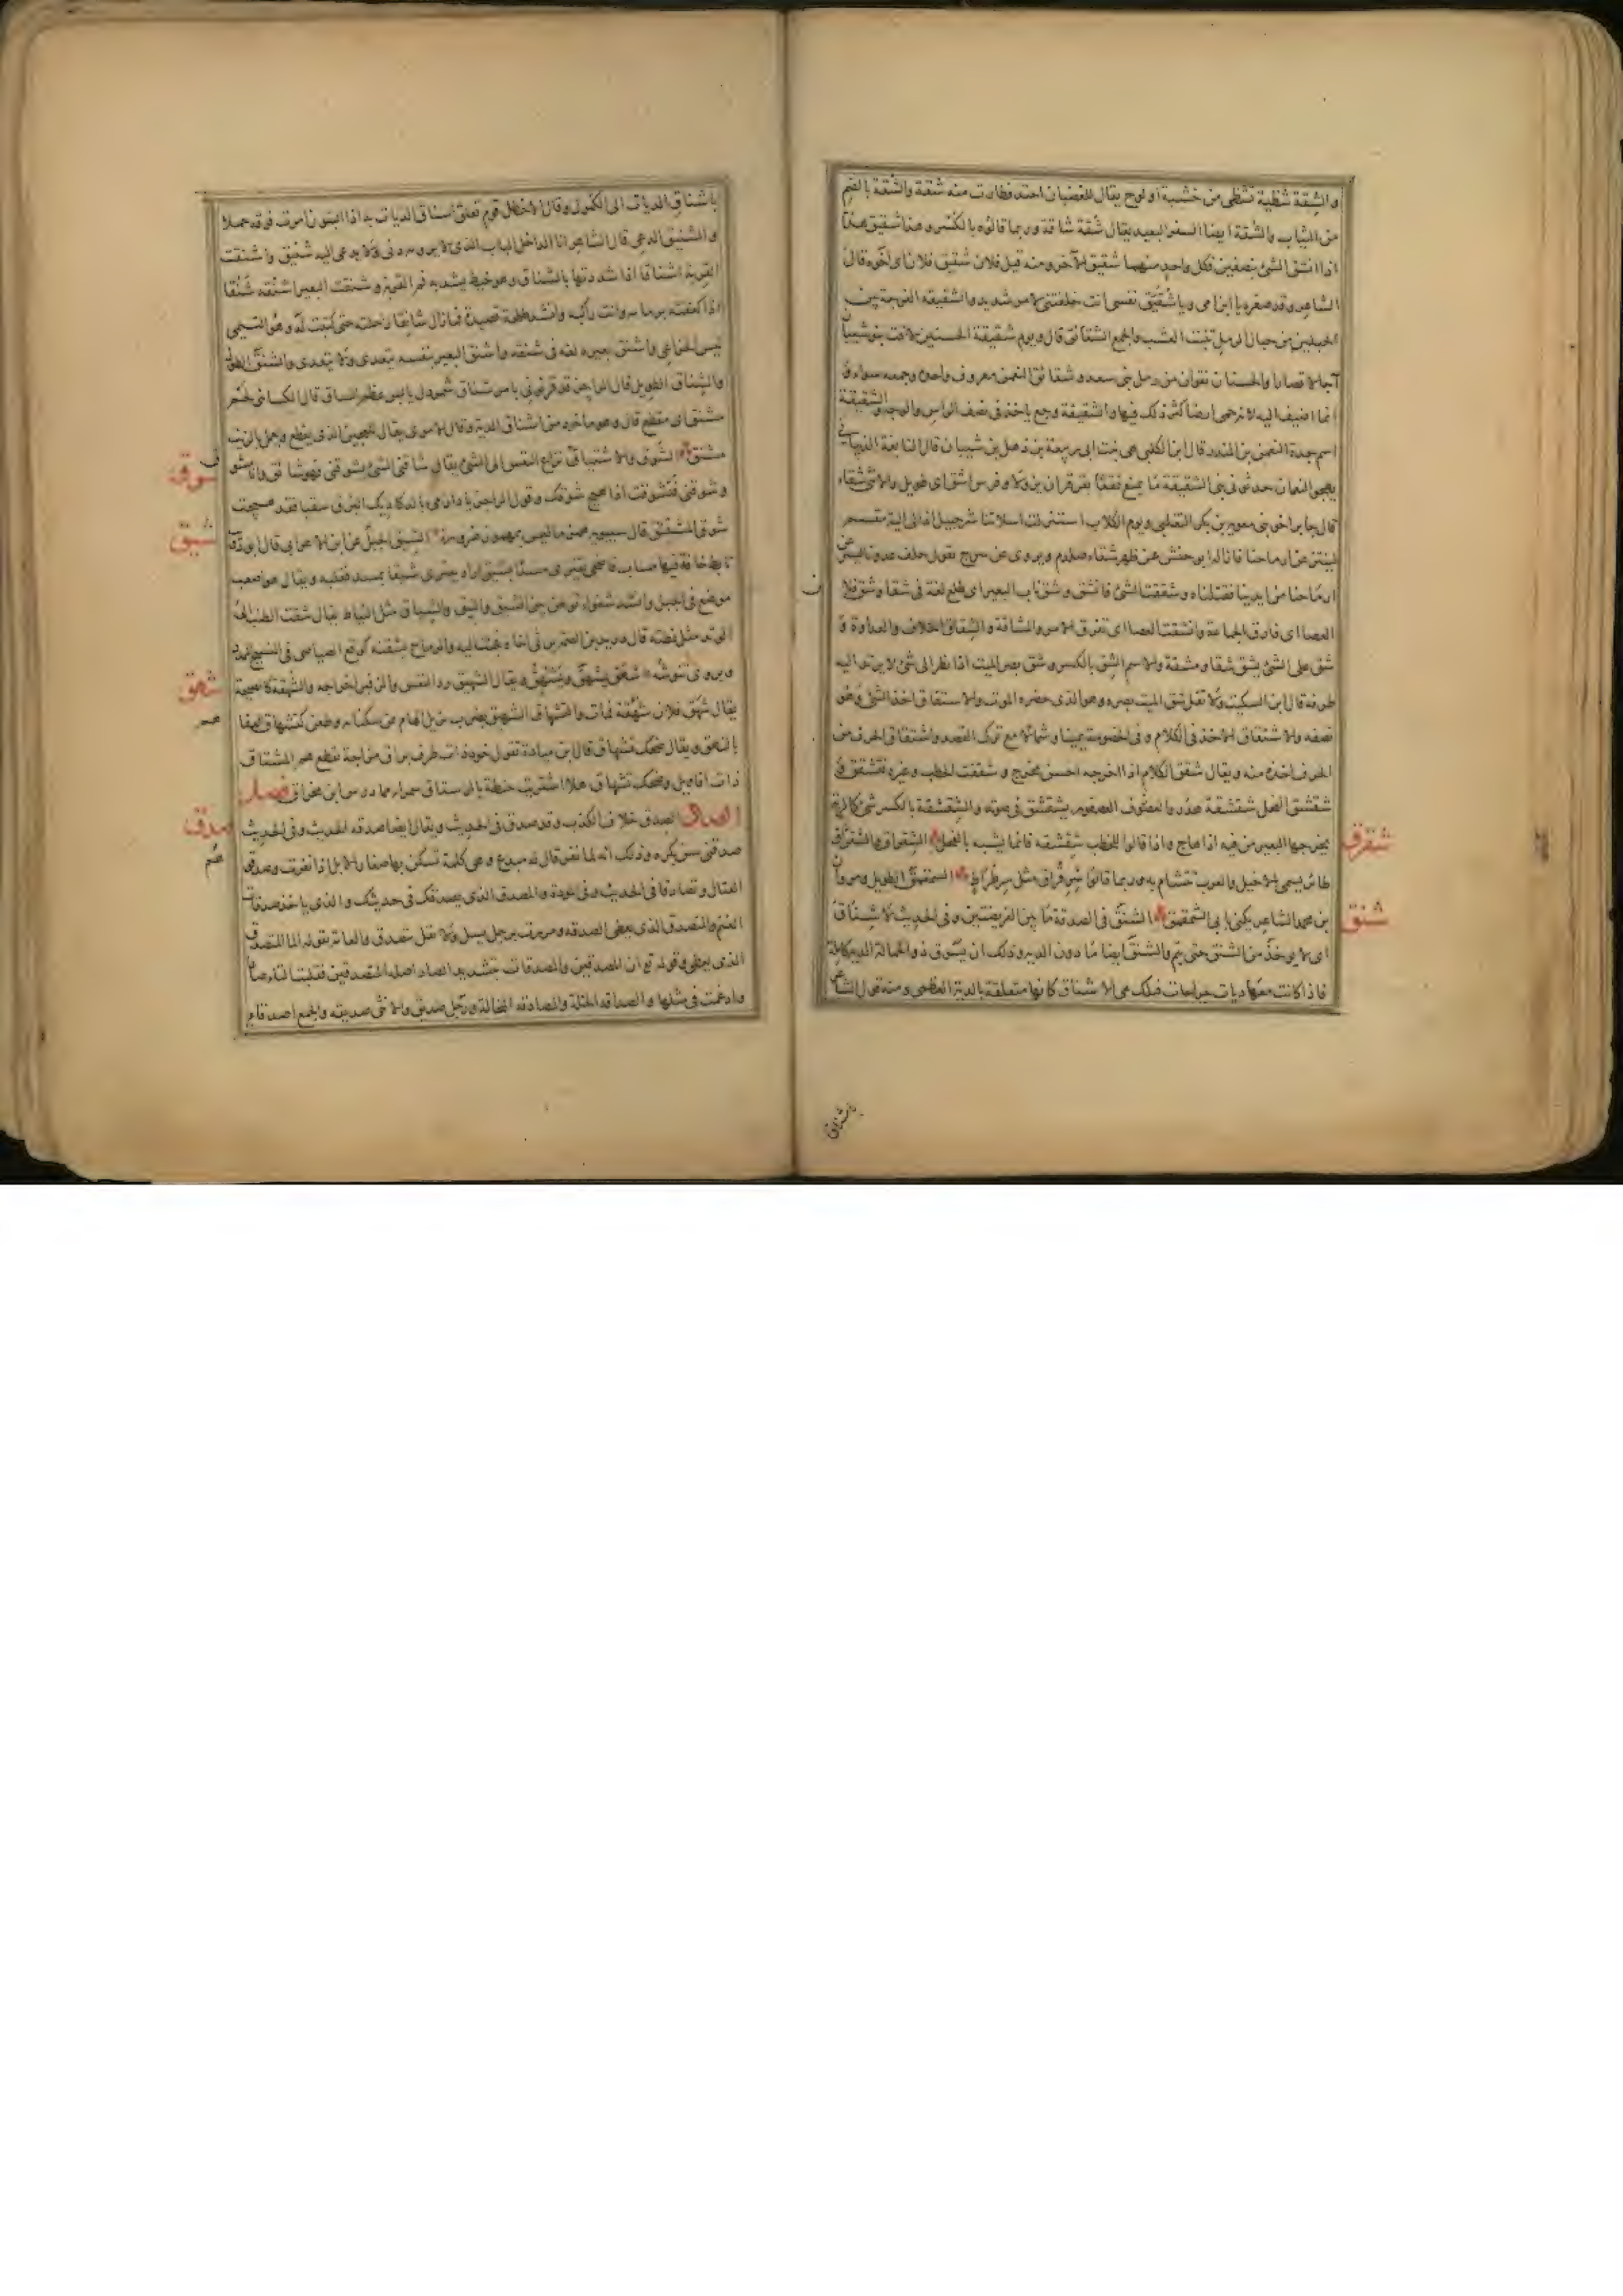 والشقة شظية تشظى من خشبة او لوح يقال للغضبان احتد فطارت منه شقة والشقة بالضم
من الثياب والشقة ايضا السفر البعيد يقال شقة شاقة وربما قالوه بالكسر وهذا شقيق هذا
اذا انشق الشئ بنصفين فكل واحد منهما شقيق الآخر ومنه قيل فلان شقيق فلان اى اخوه قال
الشاعر وقد صغره يا ابن امى ويا شقيق نفسى انت خلفتنى لامر شديد والشقيقة الفرجة بين
الحبلين من حبال الرمل تنبت العشب والجمع الشقائق قال ويوم شقيقة الحسنين لاقت بنو شيبان
آجالا قصارا والحسنان نقوان من رمل بنى سعد وشقائق النعمن معروف واحده وجمعه سواء و
انما اضيف اليه لانه حمى ارضا كثر ذلك فيها والشقيقة وجع ياخذ فى نصف الراس والوجه والشقيقة
اسم جدة النعمن بن المنذر قال ابن الكلبى هى بنت ابى ربيعة بن ذهل بن شيبان قال النابغة الذبيانى
يهجو النعمان حدثونى بنى الشقيقة ما يمنع فقعا بقرقر ان يزولا وفرس اشق اى طويل والانثى شقاء
قال جابر اخو بنى معوية بن بكر التغلبى ويوم الكلاب استنزلت اسلاتنا شرحبيل اذ الى الية مقسم
لينتزعن ارماحنا فازاله ابو حنش عن ظهر شقاء صلدم ويروى عن سرج يقول حلف عدونا لينتزعن
ارماحنا من ايدينا فقتلناه وشققت الشئ فانشق وشق ناب البعير اى طلع لغة فى شقا وشق فلان
العصا اى فارق الجماعة وانشقت العصا اى تفرق الامر والمشاقة والشقاق الخلاف والعداوة و
شق على الشئ يشق شقا ومشقة والاسم الشق بالكسر وشق بصر الميت اذا نظر الى شئ لا يرتد اليه
طرفه قال ابن السكيت ولا تقل شق الميت بصره وهو الذى حضره الموت والاشتقاق اخذ الشئ وهو
نصفه والاشتقاق الاخذ فى الكلام وفى الخصومة يمينا وشمالا مع ترك القصد واشتقاق الحرف من
الحرف اخذه منه ويقال شقق الكلام اذا اخرجه احسن مخرج وشققت الحطب وغيره فتشقق و
شقشق الفحل شقشقة هدر والعصفور يشقشق فى صوته والشقشقة بالكسر شئ كالرئة
يخرجها البعير من فيه اذا هاج واذا قالوا للخطيب شقشقة فانما يشبه بالفحل الشقراق والشقراق
شقرق
طائر يسمى الاخيل والعرب تتشام به وربما قالوا شرقراق مثل سرطراط الشمقمق الطويل ومروان
بن محمد الشاعر يكنى بابى الشمقمق الشنق فى الصدقة ما بين الفريضتين وفى الحديث لا شناق
شنق
اى لا يوخذ من الشنق حتى يتم والشنق ايضا ما دون الدية وذلك ان يسوق ذو الحمالة الدية كاملة
فاذا كانت معها ديات جراحات فتلك هى الاشناق كانها متعلقة بالدية العظمى ومنه قول الشاعر
باشناق
باشناق الديات الى الكمول وقال الاخطل قوم تعلق اشناق الديات به اذا المئون امرت فوقه حملا
والشنيق الدعى قال الشاعر انا الداخل الباب الذى لا يرومه دنى ولا يدعى اليه شنيق واشنقت
القربة اشناقا اذا شددتها بالشناق وهو خيط يشد به فم القربة وشنقت البعير اشنقه شنقا
اذا كففته بزمامه وانت راكبه وانشد طلحة قصيدة فما زال شانقا راحلته حتى كتبت له وهو التيمى
ليس الخزاعى واشنق بعيره لغة فى شنقه واشنق البعير بنفسه يتعدى ولا يتعدى والشنق الطول
والشناق الطويل قال الراجز قد قرنونى بامرئ شناق شمردل يابس عظم الساق قال الكسائى لحم
مشنق اى مقطع قال وهو ماخوذ من اشناق الدية وقال الاموى يقال للعجين الذى يقطع ويعمل بالزيت
مشنق الشوق والاشتياق نزاع النفس الى الشئ يقال شاقنى الشئ يشوقنى فهو شائق وانا مشوق
شوق
وشوقنى فتشوقت اذا هيج شوقك وقول الراجز يا دارمى بالدكاديك البرق سقيا فقد هيجت
شوق المشتئق قال سيبويه همز ما ليس بمهموز ضرورة الشيق الجبل عن ابن الاعرابى قال ابو ذؤيب
شيق
تابط خافة فيها مساب فاضحى يقترى مسدا بشيق اراد يقترى شيقا بمسد فقلبه ويقال هو اصعب
موضع فى الجبل وانشد شغواء توطن بين الشيق والنيق والشياق مثل النياط يقال شقت الطنب الى
الوتد مثل نطته قال دريد بن الصمة يرثى اخاه فجئت اليه والرماح يشقنه كوقع الصياصى فى النسيج الممدد
ويروى تنوشه شهق يشهق ويشهق ويقال الشهيق رد النفس والزفير اخراجه والشهقة كالصيحة
شهق
يقال شهق فلان شهقة فمات والتشهاق الشهيق بضرب يزيل الهام عن سكناته وطعن كتشهاق العفا
بالنهق ويقال ضحك تشهاق قال ابن ميادة تقول خود ذات طرف براق مزاجة تقطع هم المشتاق
ذات اقاويل وضحك تشهاق هلا اشتريت حنطة بالرستاق سمراء مما درس ابن مخراق فصل
الصاد الصدق خلاف الكذب وقد صدق فى الحديث ويقال ايضا صدقه الحديث وفى الحديث
صدق
صدقنى سن بكره وذلك انه لما نفر قال له هدع وهى كلمة تسكن بها صغار الابل اذا نفرت وصدقوهم
القتال وتصادقا فى الحديث وفى المودة والمصدق الذى يصدقك فى حديثك والذى ياخذ صدقات
الغنم والمتصدق الذى يعطى الصدقة ومررت برجل يسئل ولا تقل يتصدق والعامة تقوله انما المتصدق
الذى يعطى وقوله تع ان المصدقين والمصدقات بتشديد الصاد اصله المتصدقين فقلبت التاء صادا
وادغمت فى مثلها والصداقة الخلة والمصادقة المخالة ورجل صديق والانثى صديقة والجمع اصدقاء